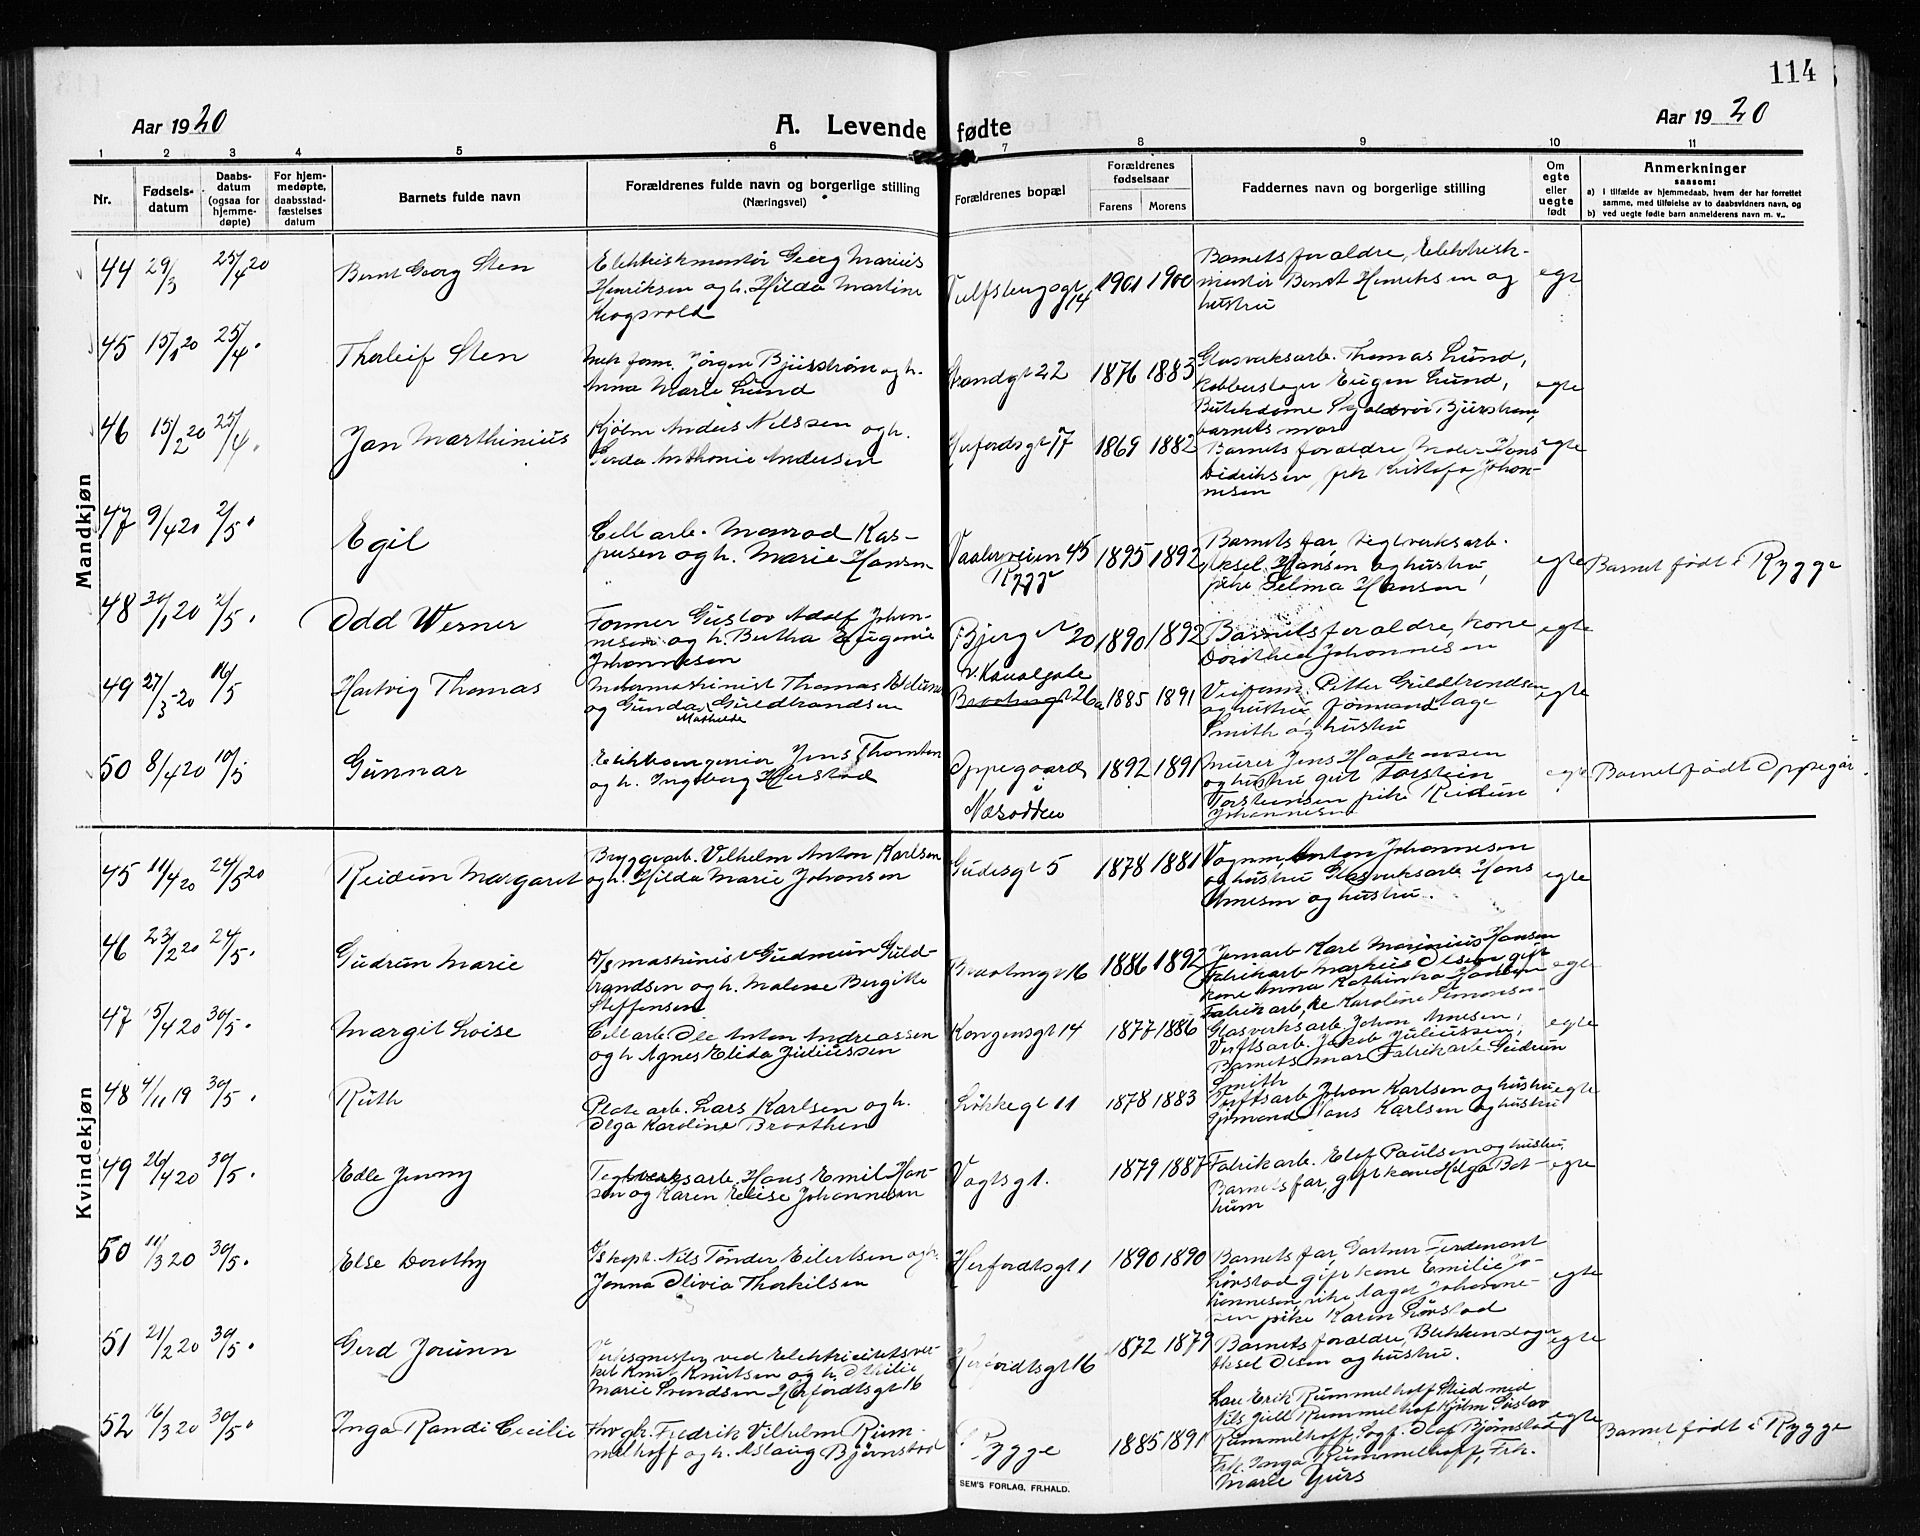 114
Aar 1920
A. Levende fødte
Aar 1920
1 2 3 4 5 6 7 8 9 10 11
Nr.
Fødsels-
datum
Daabs-
datum
(ogsaa for
hjemme-
døpte)
For hjem-
medøpte,
daabsstad-
fæstelses
datum
Barnets fulde navn
Forældrenes fulde navn og borgerlige stilling
(Næringsvei)
Forældrenes bopæl
Forældrenes
fødselsaar
Farens Morens
Faddernes navn og borgerlige stilling
Om
egte
eller
uegte
født
Anmerkninger
saasom:
a) I tilfælde av hjemmedaab, hvem der har forrettet
samme, med tilføielse av to daabsvidners navn, og
b) ved uegte fødte barn anmelderens navn m. v..
Mandkjøn
44 29/3 25/4 20 Bernt Georg Sten
Elektriskmontør Georg Marius
Henriksen og h. Hilda Martine
1901 1900
Barnets foraldre, Elektrisk-
montør Bernt Henriksen og
hustru
egte
45 15/1 20 25/4 Thorleif Sten
Jørgen og h.
Anna Marie Lund
Strandgt 22 1876 1883
Glasverksarb. Thomas Lund,
Kobberslager Eugen Lund,
barnets mor
egte
46 15/2 20 25/4 Jan Marthinius
Anders Nilssen og h.
Gerda Anthonie Andersen
Herfordsgt 17 1869 1882
Barnets foraldre, Hans
Didriksen, frk Kristofa Johan-
nesen
egte
47 9/4 20 2/5 Egil
Cell arb. Kas-
persen og h. Marie Hansen
Vaalerveien 45
Rygge
1895 1892
Barnets far, teglverksarb.
Aksel Hansen og hustru,
pike Selma Hansen
egte
Barnet født i Rygge
48 30/1 20 2/5 Odd Werner
Former Gustav Adolf Johan-
nesen og h. Bertha Eugenie
Johannesen
Bjerg N 20 1890 1892
Barnets foraldre, kone
Dorothea Johannesen
egte
49 27/3-20 16/5 Hartvig Thomas
Motormaskinist Thomas
og Gunda Guldbrandsen
Mathilde
v. Kanalgate
26a 1885 1891
Petter Guldbrandsen
og hustru, formand Aage
Smith og hustru
egte
50 8/4 20 10/5 Gunnar
Jens Thomten
og h. Ingeborg Herstad
Oppegaard
Næsodden
1892 1891
Murer Jens Haakonsen
og hustru, gut Torstein
Torsteinsen, pike Reidun
Johannesen
egte
Barnet født Oppegår
Kvindekjøn
45 11/4 20 24/5 20 Reidun Margaret
Bryggearb. Vilhelm Anton Karlsen
og h. Hilda Marie Johansen
Gudesgt 5 1878 1881
Vognm. Anton Johannesen
og hustru Glasverksarb. Hans
Arnesen og hustru.
egte
46 23/2 20 24/5 Gudrun Marie
D/S maskinist Gudmun Guld-
brandsen og h. Malene Bergitte
Steffensen
1886 1892
Jernarb Karl Marinius Hansen
Fabrikarb Markus Olsen gift
kone Anna Kathinka Jansen
Fabrikarb.ke Karoline Simonsen
egte
47 15/4 20 30/5 Margit Lovise
Cell arb. Ole Anton Andreassen
og h Agnes Elida Juliussen
Kongensgt 14 1877 1886
Glasverksarb Johan Arnesen,
Verftsarb. Jakob Juliussen,
Barnets mor Fabrikarb. Gudrun
Smith
egte
48 4/11 19 30/5 Ruth
Plate arb. Lars Karlsen og h.
Olga Karoline Braathen
Løkkegt 11 1878 1883
Verftsarb Johan Karlsen og hustru
Hans Karlsen og hustru
egte
49 26/4 20 30/5 Edle Jenny
Teglverksarb. Hans Emil Han-
sen og Karen Elise Johannesen
Vogtsgt. 1879 1887
Fabrikarb. Elof Paulsen og hustru,
Barnets far, gift kone Helga Bot-
hum
egte
50 11/3 20 30/5 Else Dorothy
D/S kapt. Nils Tønder Eilertsen og h.
Jenna Olivia Thorkilsen
Herfordtsgt 1 1890 1890
Barnets far, Gartner Ferdinant
Lørstad gift kone Emilie Jo-
hannesen,
pike Karen Lørstad
egte
51 21/2 20 30/5 Gerd Jorunn
Verksmester ved Elektricitetsver-
ket Knut Knutsen og h. Othilie
Marie Svendsen Herfordtsgt 16
Herfordtsgt 16
1872 1879
Barnets foraldre, Blikkenslager
Aksel Olsen og hustru.
egte
52 16/3 20 30/5 Inga Randi Cecilie
Fredrik Vilhelm Rum-
melhoff og h. Aslaug Bjørnstad
Rygge 1885 1891
Erik Rummelhoff Stud med
Nils Rummelhoff Gustav
Rummelhoff, Olaf Bjørnstad
Frk. Inga Rummelhoff, Frk.
Marie
egte
Barnet født i Rygge
SEM'S FORLAG, FR.HALD.